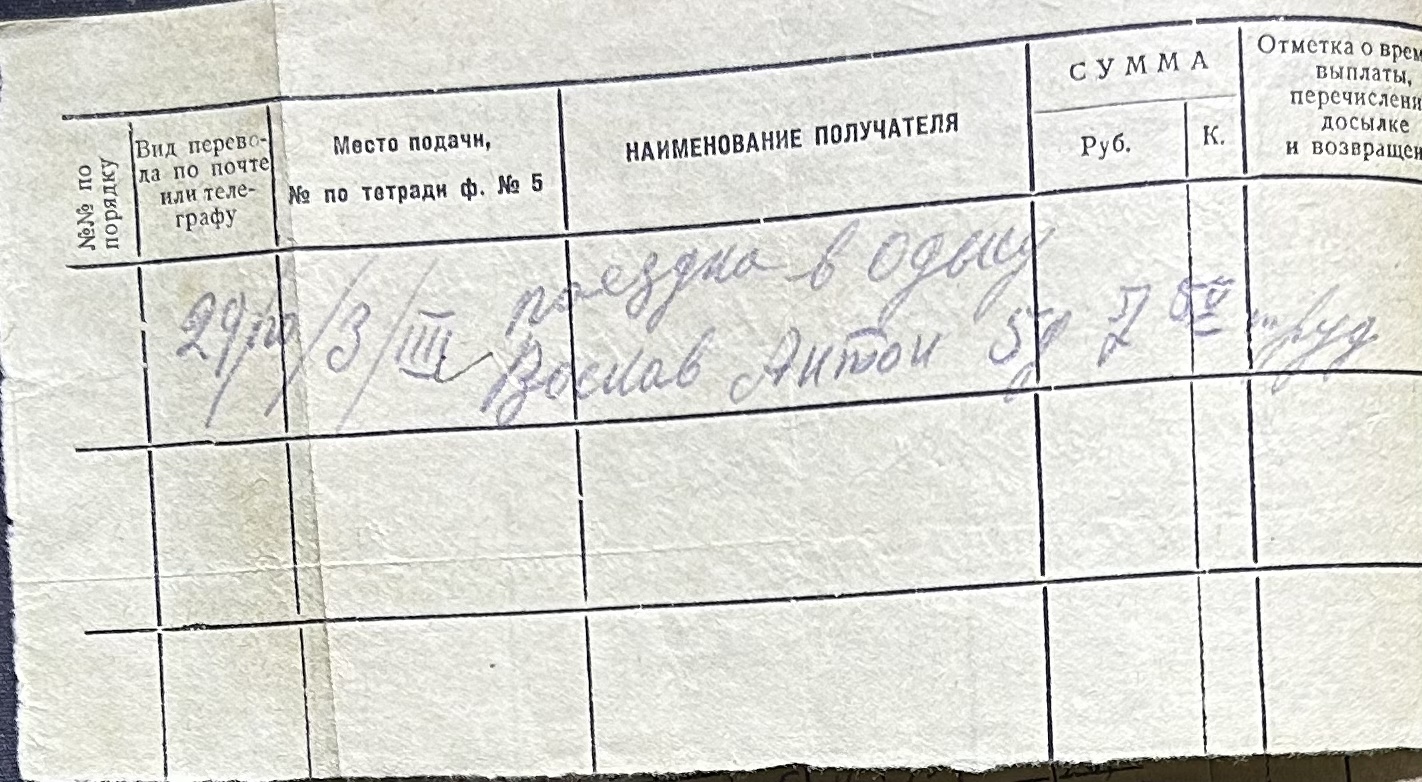 №№ по порядку
Вид перево-
да по почте
или теле-
графу
Место подачи,
№ по тетради ф. № 5
НАИМЕНОВАНИЕ ПОЛУЧАТЕЛЯ
СУММА
Руб.
К.
Отметка о врем
выплаты,
перечислени
досылке
и возвращен
поездка в Одысу
/3/III Антон